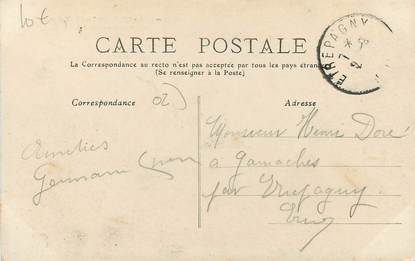 10 €
CARTE POSTALE
La Correspondance au recto n'est pas acceptée par tous les pays étrangers
(Se renseigner à la Poste)
ETREPAGNY
Correspondance
02
Adresse
Amitiés
Germain
Monsieur Henri Doré
à Gamaches
par Etrepagny
Eure